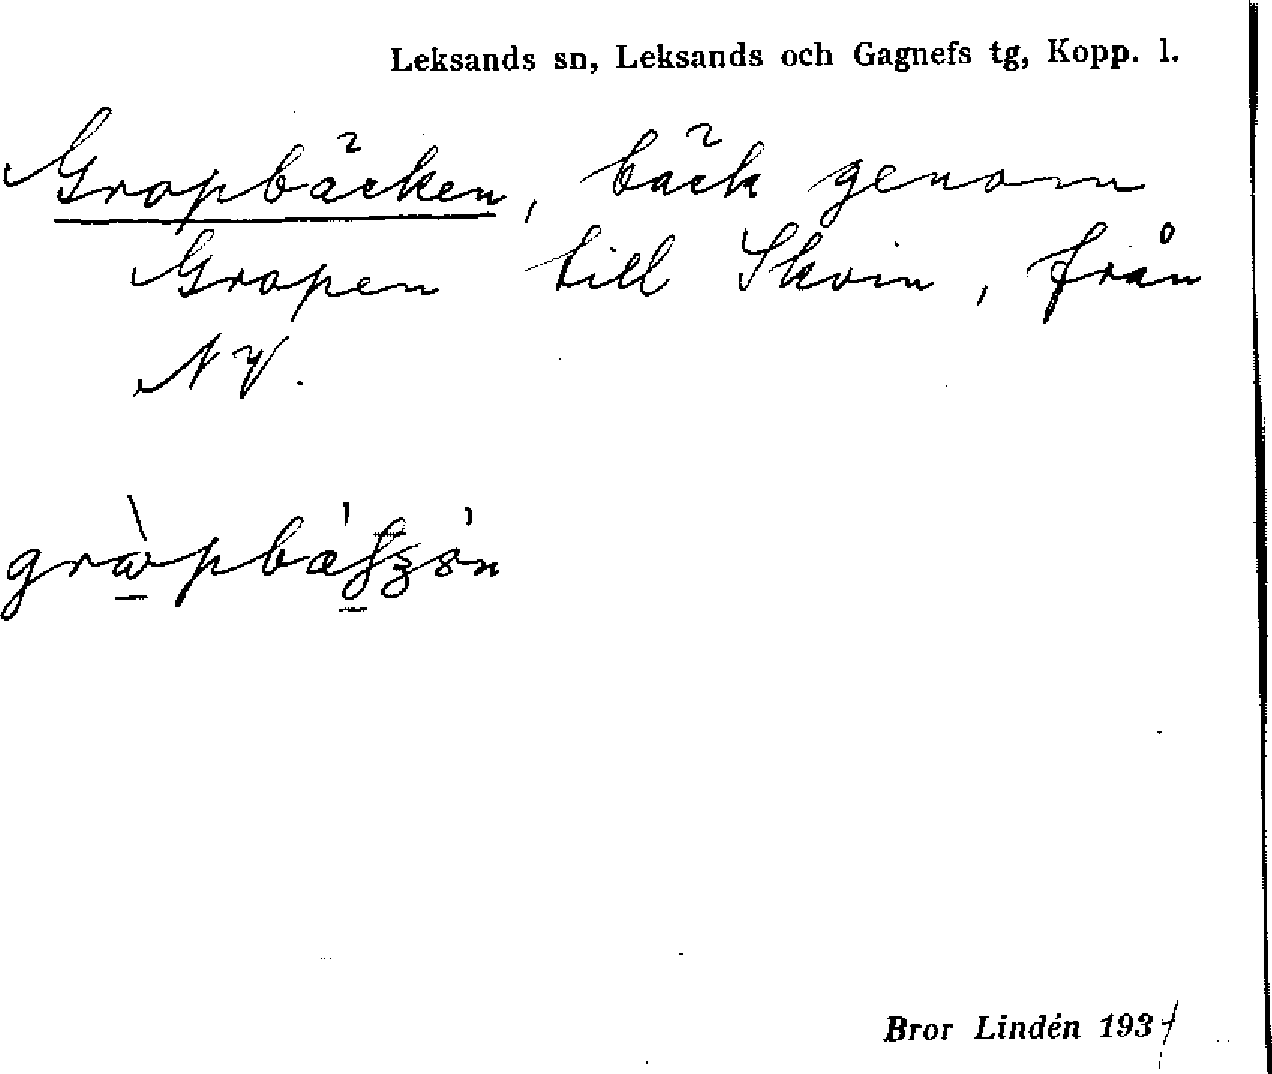 Leksands sn, Leksands och Gagnefs tg, Kopp. l.
Gropbäcken, bäck genom
Gropen till Skoin, från
NV.
Bror Lindén 193